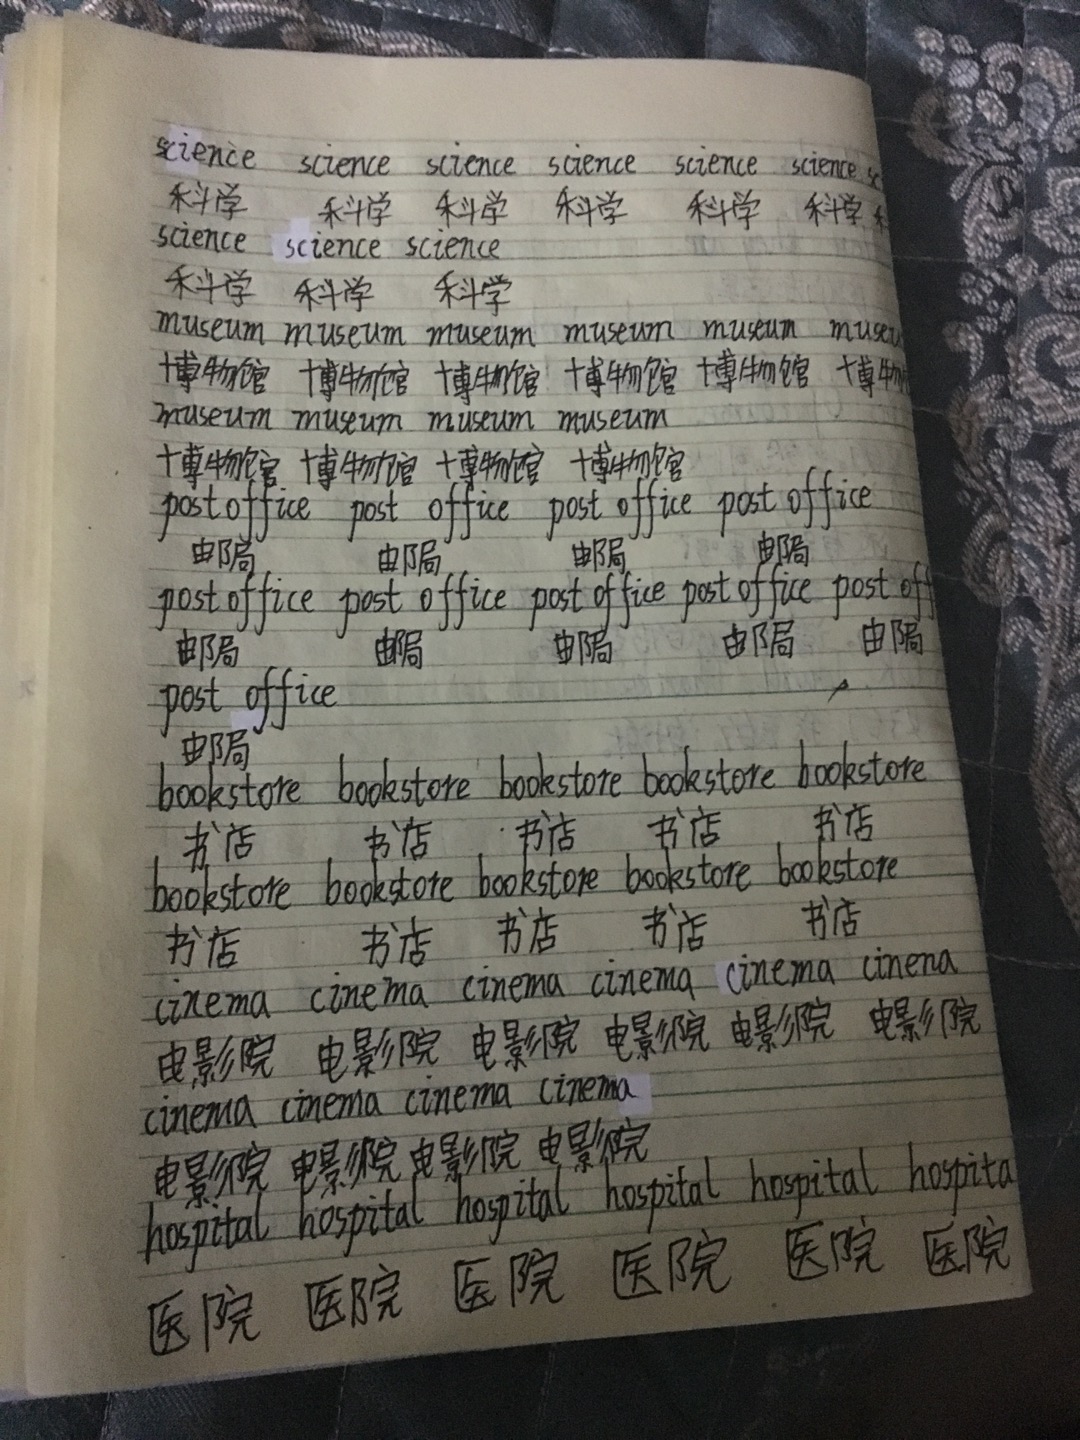 science science science science science science sc
科学 科学 科学 科学 科学 科学 科
science science science
科学 科学 科学
museum museum museum museum museum museu
博物馆 博物馆 博物馆 博物馆 博物馆 博物
museum museum museum museum
博物馆 博物馆 博物馆 博物馆
post office post office post office post office
邮局 邮局 邮局 邮局
post office post office post office post office post off
邮局 邮局 邮局 邮局 邮局
post office
邮局
bookstore bookstore bookstore bookstore bookstore
书店 书店 书店 书店 书店
bookstore bookstore bookstore bookstore bookstore
书店 书店 书店 书店 书店
cinema cinema cinema cinema cinema cinena
电影院 电影院 电影院 电影院 电影院 电影院
cinema cinema cinema cinema
电影院 电影院 电影院 电影院
hospital hospital hospital hospital hospital hospita
医院 医院 医院 医院 医院 医院